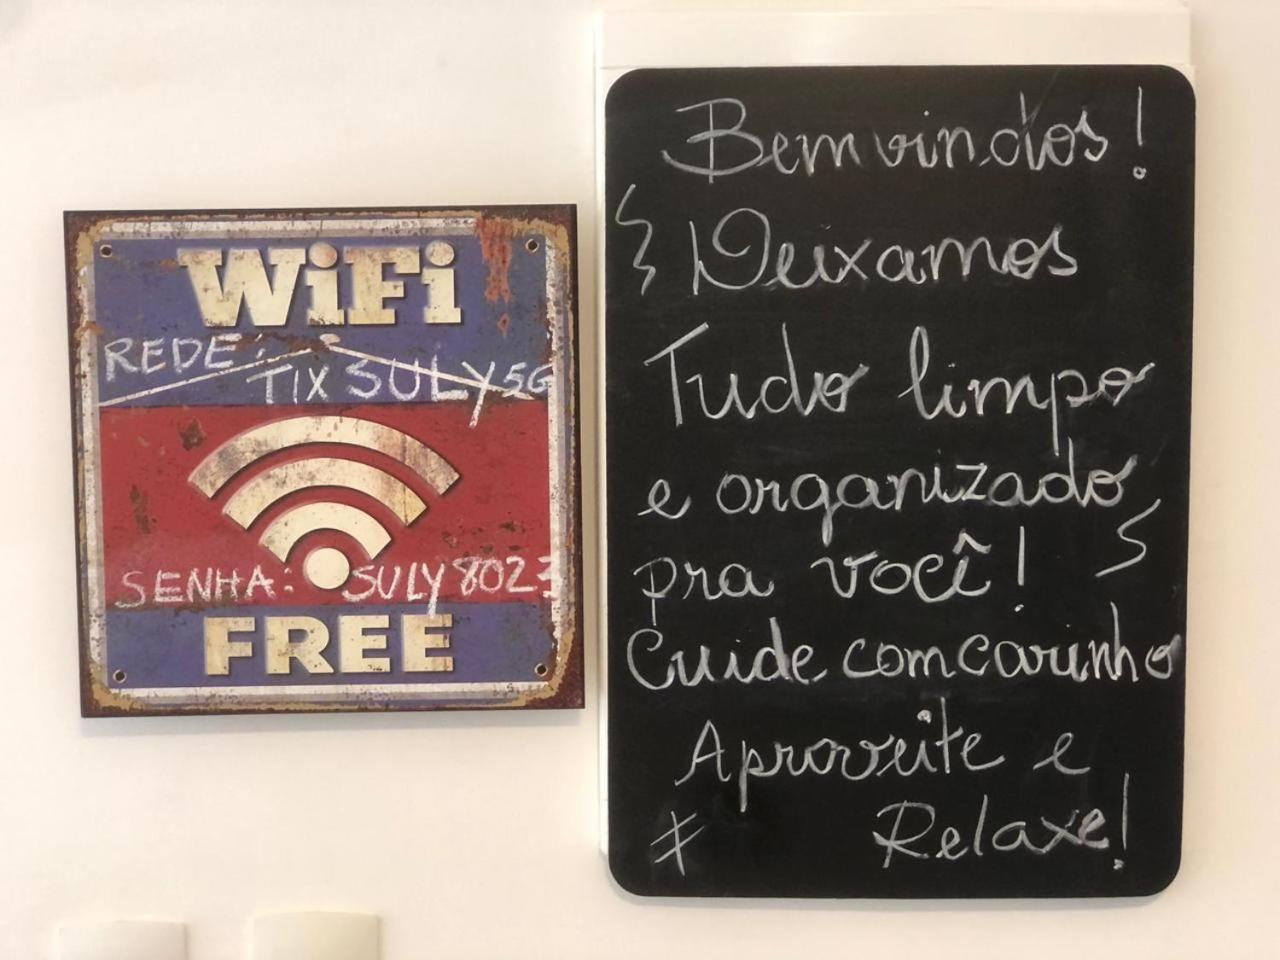 WiFi
REDE:
TIX SULY 5G
SENHA: SULY 8023
FREE
Bemvindos!
Deixamos
Tudo limpo
e organizado
pra você!
Cuide com carinho
Aproveite e
Relaxe!